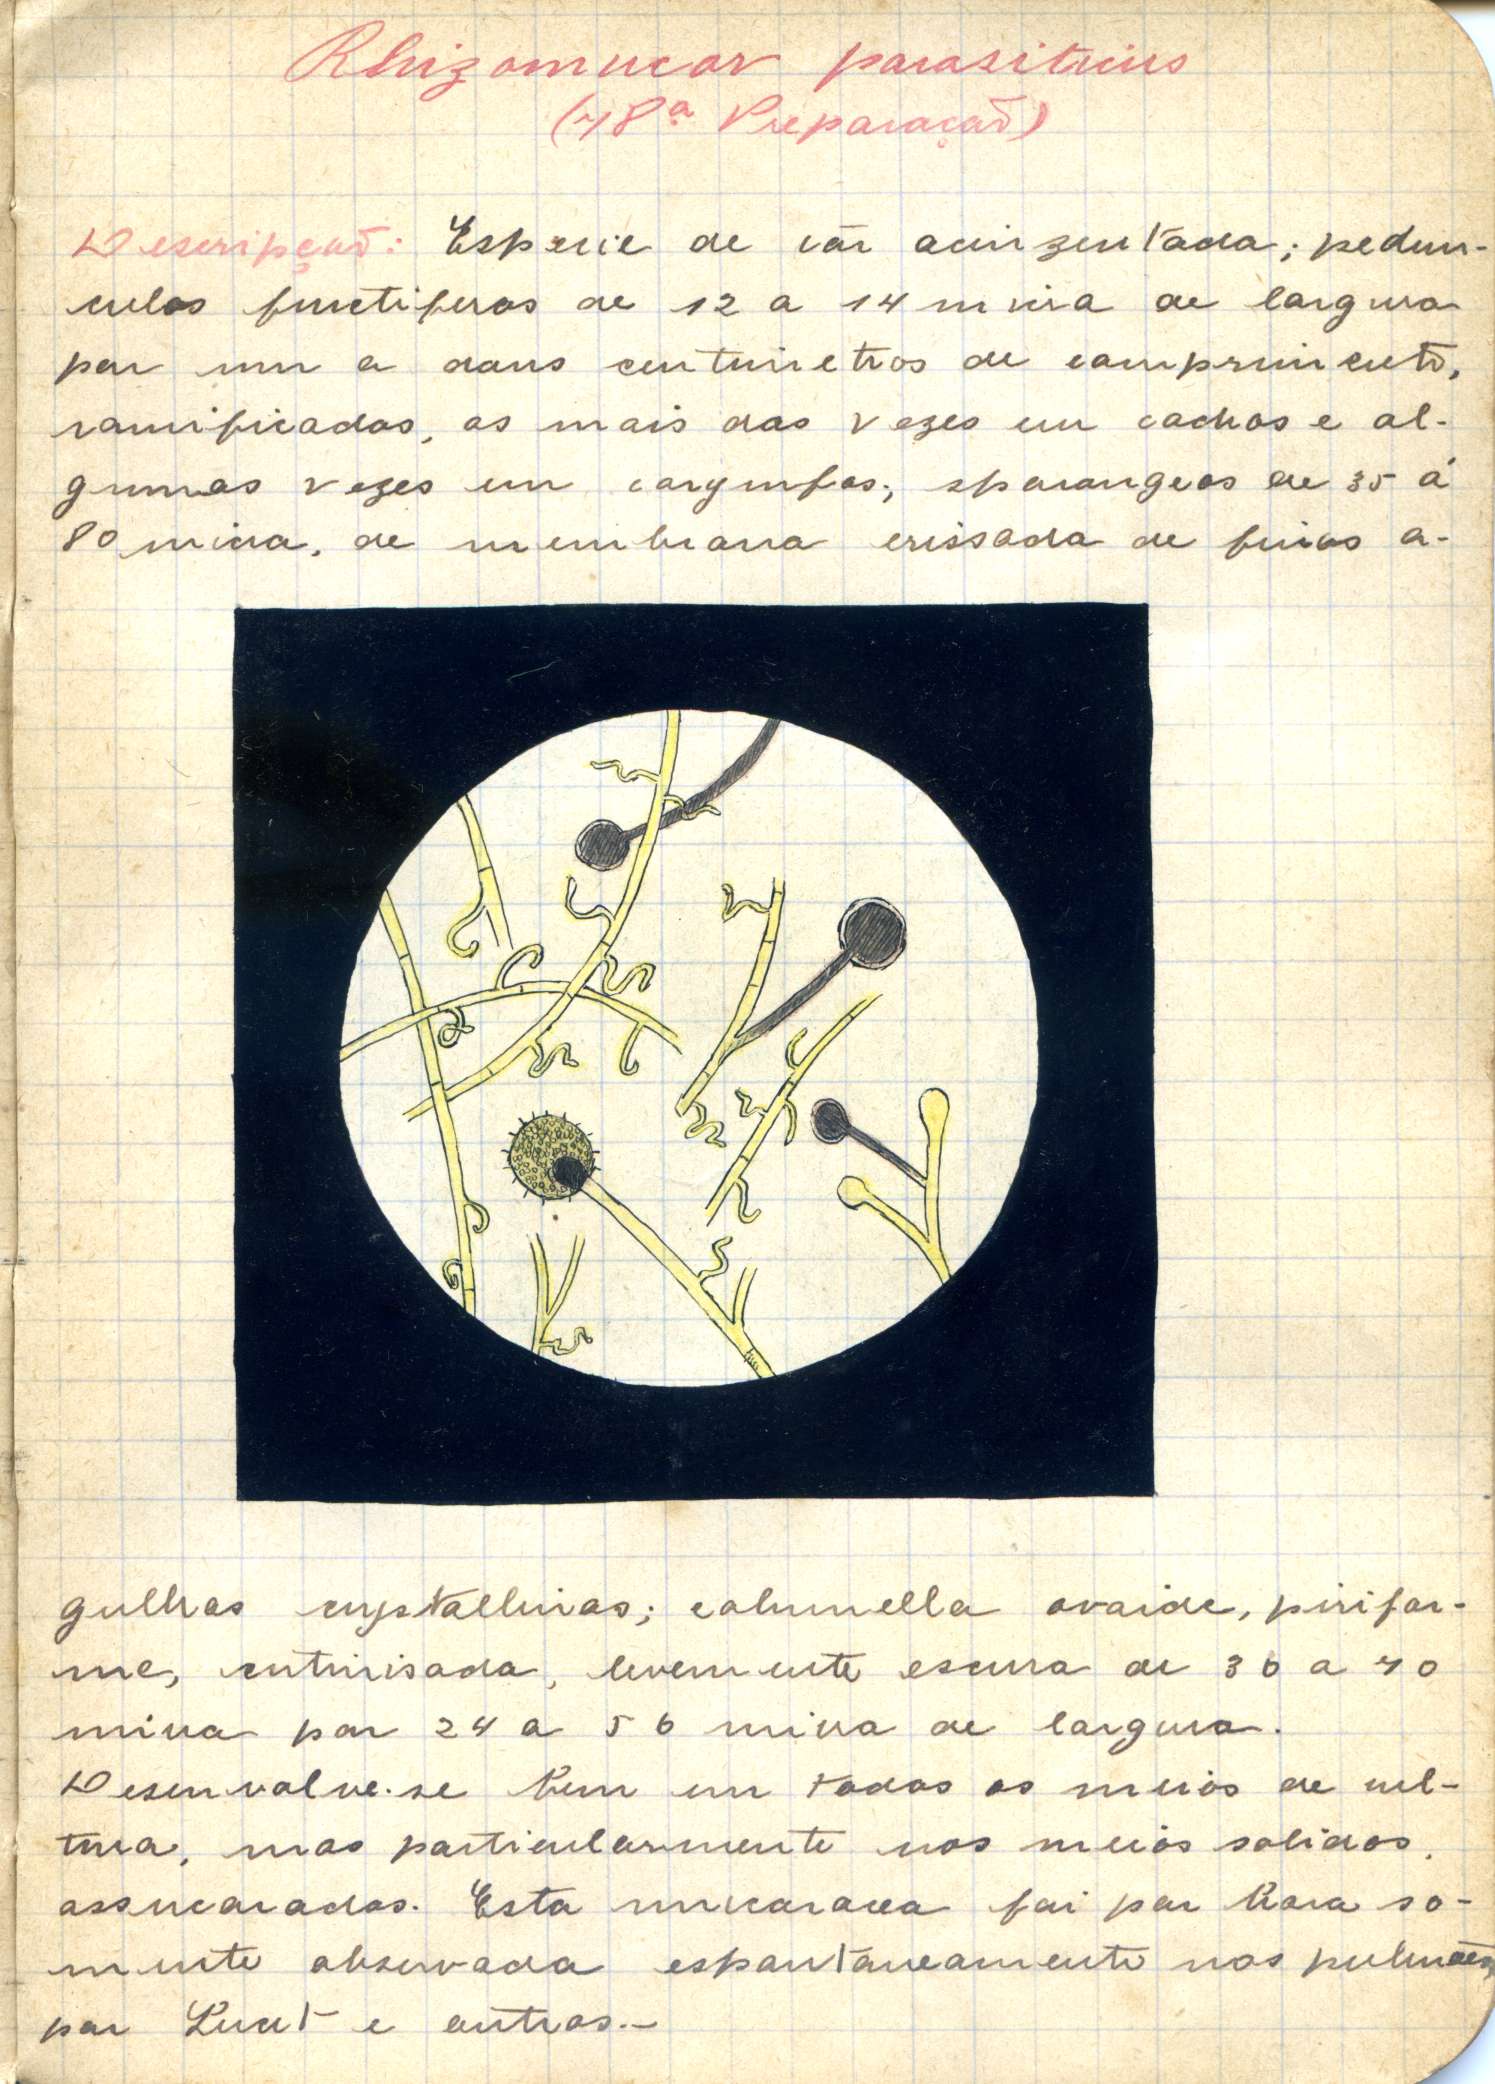 Rhizomucor parasiticus
(48ª Preparação)
Descripção: Especie de côr acinzentada; pedun-
culos fructiferos de 12 a 14 micra de largura
por um a dous centimetros de comprimento,
ramificados, as mais das vezes em cachos e al-
gumas vezes em corymbos; sporangeos de 35 á
80 micra, de membrana erissada de finas a-
gulhas crystallinas; columella ovoide, pirifor-
me, cutinisada, levemente escura de 30 a 70
micra por 24 a 56 micra de largura.
Desenvolve-se bem em todos os meios de cul-
tura, mas particularmente nos meios solidos,
assucarados. Esta mucoracea foi por hora so-
mente observada espontaneamente nos pulmões,
por Lucet e outros.-